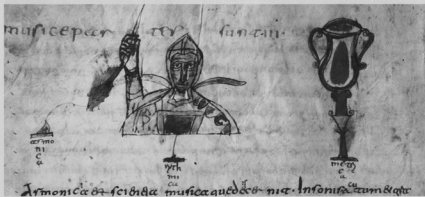 musice par tes sunt · iii ·
armo
ni
c
a
ryth
mi
ca
metr
i
ca
Armonica est sciencia musica que decernit in sonis acutum et gra